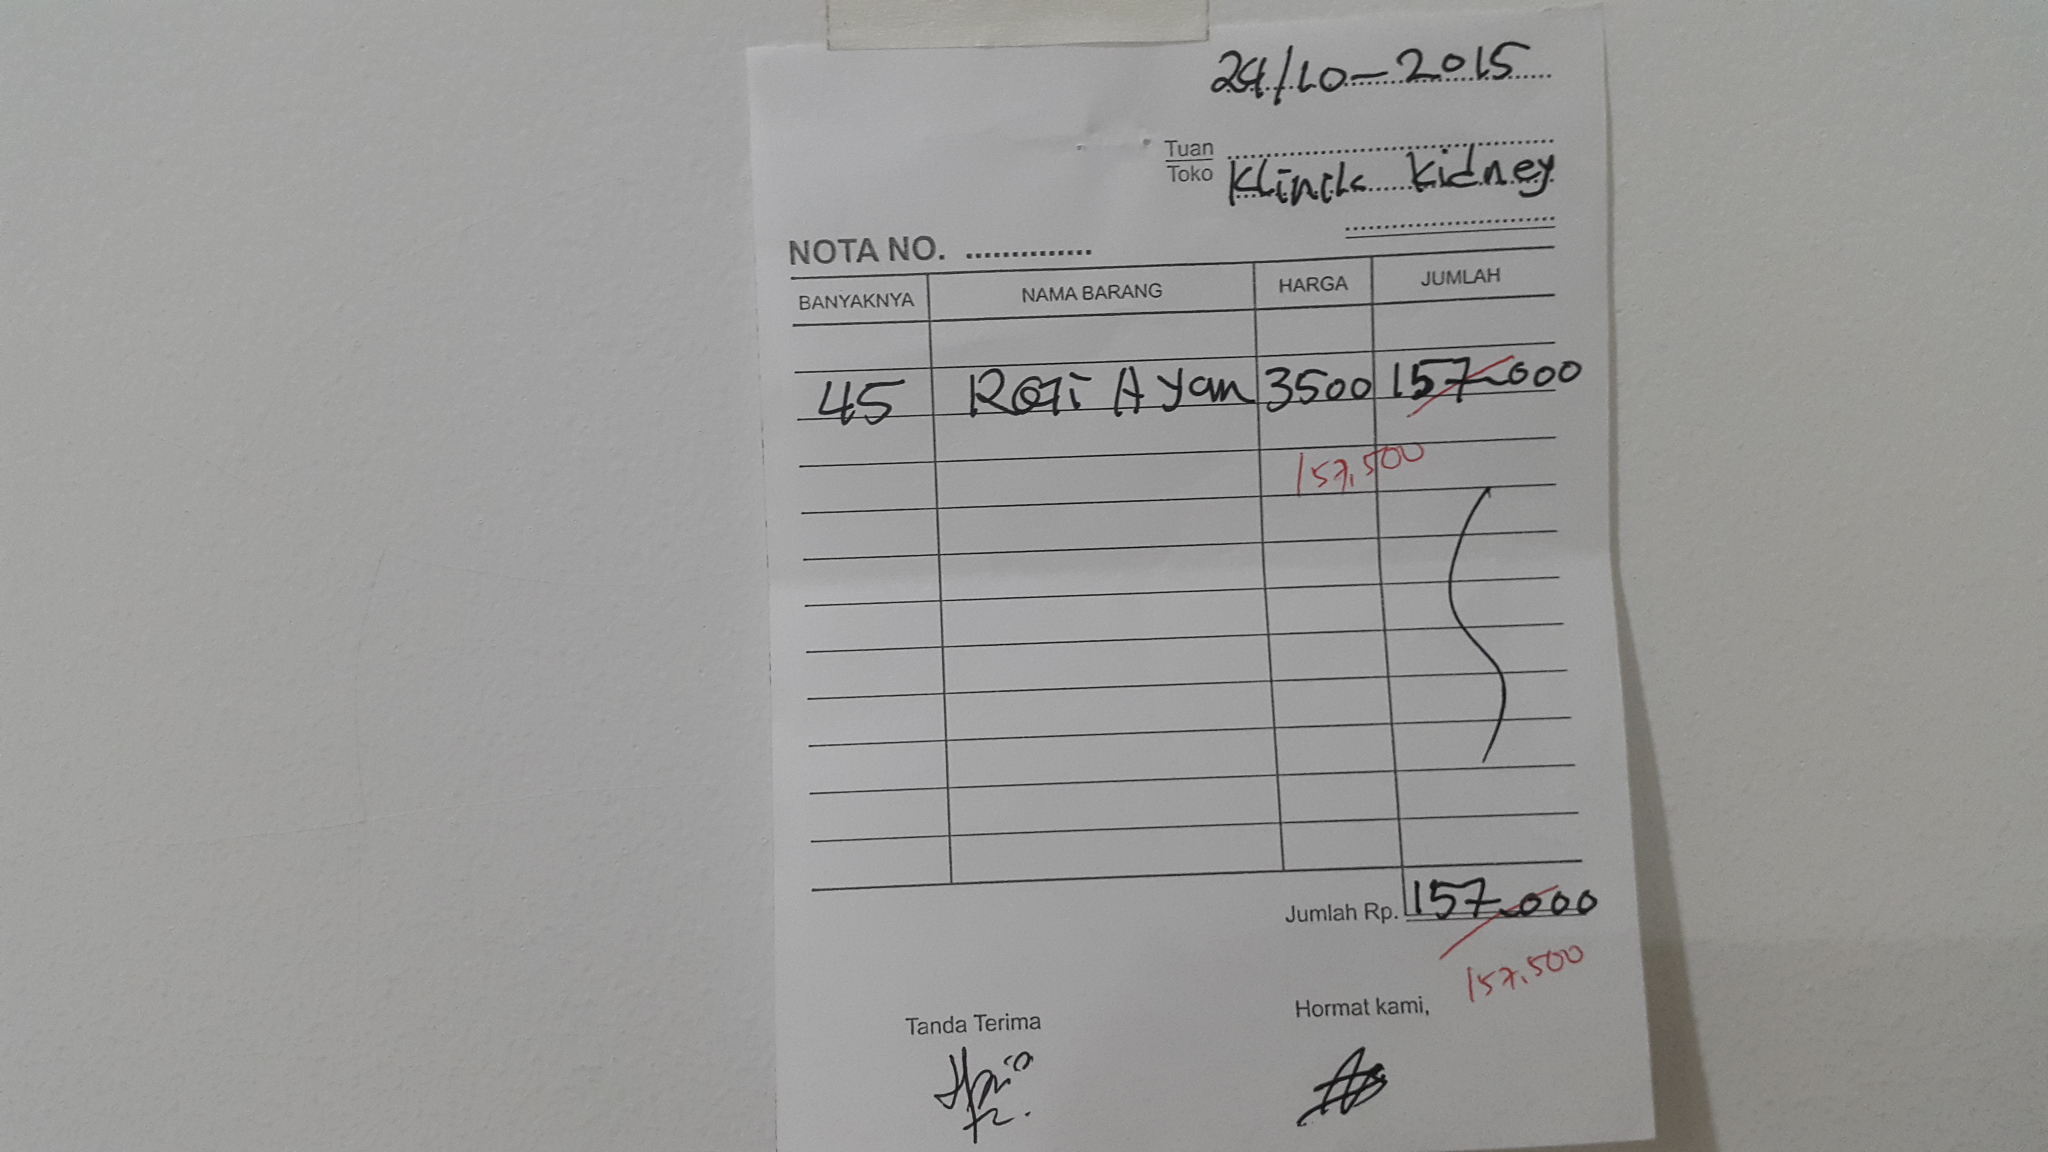 24/10-2015
Tuan
Toko
Klinik Kidney
NOTA NO. ..............
BANYAKNYA NAMA BARANG HARGA JUMLAH
45 Roti Ayam 3500 157.000
157,500
Jumlah Rp. 157.000
157,500
Tanda Terima Hormat kami,